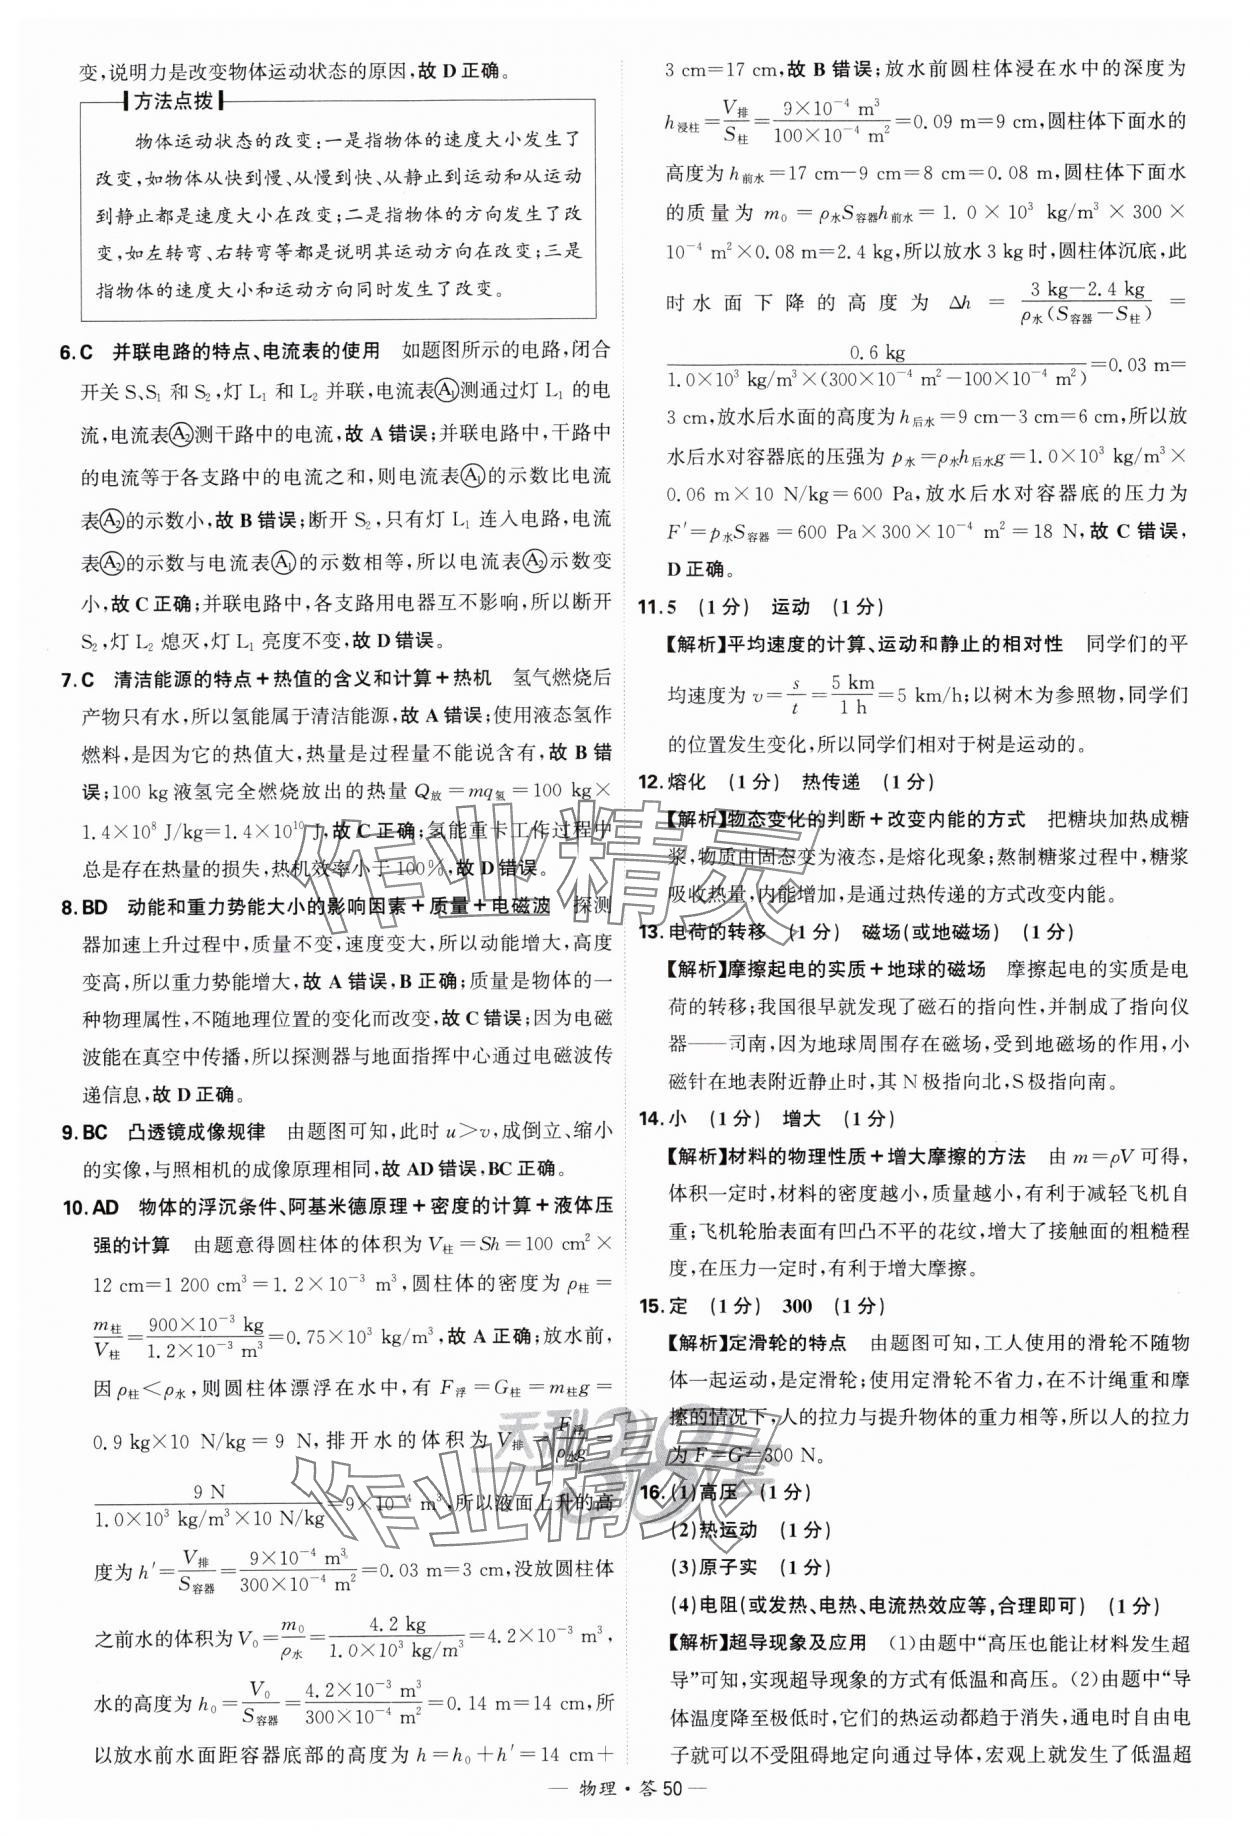 变,说明力是改变物体运动状态的原因,故 D 正确。
方法点拨
物体运动状态的改变:一是指物体的速度大小发生了
改变,如物体从快到慢、从慢到快、从静止到运动和从运动
到静止都是速度大小在改变;二是指物体的方向发生了改
变,如左转弯、右转弯等都是说明其运动方向在改变;三是
指物体的速度大小和运动方向同时发生了改变。
6. C 并联电路的特点、电流表的使用 如题图所示的电路,闭合
开关 S、S₁ 和 S₂,灯 L₁ 和 L₂ 并联,电流表Ⓐ₁测通过灯 L₁ 的电
流,电流表Ⓐ₂测干路中的电流,故 A 错误;并联电路中,干路中
的电流等于各支路中的电流之和,则电流表Ⓐ₁的示数比电流
表Ⓐ₂的示数小,故 B 错误;断开 S₂,只有灯 L₁ 连入电路,电流
表Ⓐ₂的示数与电流表Ⓐ₁的示数相等,所以电流表Ⓐ₂示数变
小,故 C 正确;并联电路中,各支路用电器互不影响,所以断开
S₂,灯 L₂ 熄灭,灯 L₁ 亮度不变,故 D 错误。
7. C 清洁能源的特点+热值的含义和计算+热机 氢气燃烧后
产物只有水,所以氢能属于清洁能源,故 A 错误;使用液态氢作
燃料,是因为它的热值大,热量是过程量不能说含有,故 B 错
误;100 kg 液氢完全燃烧放出的热量 Q放=mq氢=100 kg×
1.4×10⁸ J/kg=1.4×10¹⁰ J,故 C 正确;氢能重卡工作过程中
总是存在热量的损失,热机效率小于 100%,故 D 错误。
8. BD 动能和重力势能大小的影响因素+质量+电磁波 探测
器加速上升过程中,质量不变,速度变大,所以动能增大,高度
变高,所以重力势能增大,故 A 错误,B 正确;质量是物体的一
种物理属性,不随地理位置的变化而改变,故 C 错误;因为电磁
波能在真空中传播,所以探测器与地面指挥中心通过电磁波传
递信息,故 D 正确。
9. BC 凸透镜成像规律 由题图可知,此时 u>v,成倒立、缩小
的实像,与照相机的成像原理相同,故 AD 错误,BC 正确。
10. AD 物体的浮沉条件、阿基米德原理+密度的计算+液体压
强的计算 由题意得圆柱体的体积为 V柱=Sh=100 cm²×
12 cm=1 200 cm³=1.2×10⁻³ m³,圆柱体的密度为 ρ柱=
m柱/V柱=900×10⁻³ kg/1.2×10⁻³ m³=0.75×10³ kg/m³,故 A 正确;放水前,
因 ρ柱<ρ水,则圆柱体漂浮在水中,有 F浮=G柱=m柱g=
0.9 kg×10 N/kg=9 N,排开水的体积为 V排=F浮/ρ水g=
9 N/1.0×10³ kg/m³×10 N/kg=9×10⁻⁴ m³,所以液面上升的高
度为 h′=V排/S容器=9×10⁻⁴ m³/300×10⁻⁴ m²=0.03 m=3 cm,没放圆柱体
之前水的体积为 V₀=m₀/ρ水=4.2 kg/1.0×10³ kg/m³=4.2×10⁻³ m³,
水的高度为 h₀=V₀/S容器=4.2×10⁻³ m³/300×10⁻⁴ m²=0.14 m=14 cm,所
以放水前水面距容器底部的高度为 h=h₀+h′=14 cm+
3 cm=17 cm,故 B 错误;放水前圆柱体浸在水中的深度为
h浸柱=V排/S柱=9×10⁻⁴ m³/100×10⁻⁴ m²=0.09 m=9 cm,圆柱体下面水的
高度为 h前水=17 cm-9 cm=8 cm=0.08 m,圆柱体下面水
的质量为 m₀=ρ水S容器h前水=1.0×10³ kg/m³×300×
10⁻⁴ m²×0.08 m=2.4 kg,所以放水 3 kg 时,圆柱体沉底,此
时水面下降的高度为 Δh=3 kg-2.4 kg/ρ水(S容器-S柱)=
0.6 kg/1.0×10³ kg/m³×(300×10⁻⁴ m²-100×10⁻⁴ m²)=0.03 m=
3 cm,放水后水面的高度为 h后水=9 cm-3 cm=6 cm,所以放
水后水对容器底的压强为 p水=ρ水h后水g=1.0×10³ kg/m³×
0.06 m×10 N/kg=600 Pa,放水后水对容器底的压力为
F′=p水S容器=600 Pa×300×10⁻⁴ m²=18 N,故 C 错误,
D 正确。
11. 5 (1 分) 运动 (1 分)
【解析】平均速度的计算、运动和静止的相对性 同学们的平
均速度为 v=s/t=5 km/1 h=5 km/h;以树木为参照物,同学们
的位置发生变化,所以同学们相对于树是运动的。
12. 熔化 (1 分) 热传递 (1 分)
【解析】物态变化的判断+改变内能的方式 把糖块加热成糖
浆,物质由固态变为液态,是熔化现象;熬制糖浆过程中,糖浆
吸收热量,内能增加,是通过热传递的方式改变内能。
13. 电荷的转移 (1 分) 磁场(或地磁场) (1 分)
【解析】摩擦起电的实质+地球的磁场 摩擦起电的实质是电
荷的转移;我国很早就发现了磁石的指向性,并制成了指向仪
器——司南,因为地球周围存在磁场,受到地磁场的作用,小
磁针在地表附近静止时,其 N 极指向北,S 极指向南。
14. 小 (1 分) 增大 (1 分)
【解析】材料的物理性质+增大摩擦的方法 由 m=ρV 可得,
体积一定时,材料的密度越小,质量越小,有利于减轻飞机自
重;飞机轮胎表面有凹凸不平的花纹,增大了接触面的粗糙程
度,在压力一定时,有利于增大摩擦。
15. 定 (1 分) 300 (1 分)
【解析】定滑轮的特点 由题图可知,工人使用的滑轮不随物
体一起运动,是定滑轮;使用定滑轮不省力,在不计绳重和摩
擦的情况下,人的拉力与提升物体的重力相等,所以人的拉力
为 F=G=300 N。
16. (1)高压 (1 分)
(2)热运动 (1 分)
(3)原子实 (1 分)
(4)电阻(或发热、电热、电流热效应等,合理即可) (1 分)
【解析】超导现象及应用 (1)由题中“高压也能让材料发生超
导”可知,实现超导现象的方式有低温和高压。(2)由题中“导
体温度降至极低时,它们的热运动都趋于消失,通电时自由电
子就可以不受阻碍地定向通过导体,宏观上就发生了低温超
— 物理·答 50 —
作业精灵
天利38套
作业精灵